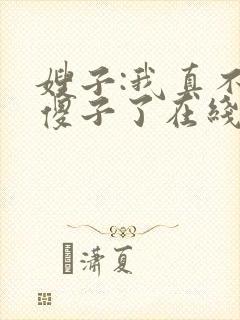 嫂子:我真不
傻子了在线
潇夏